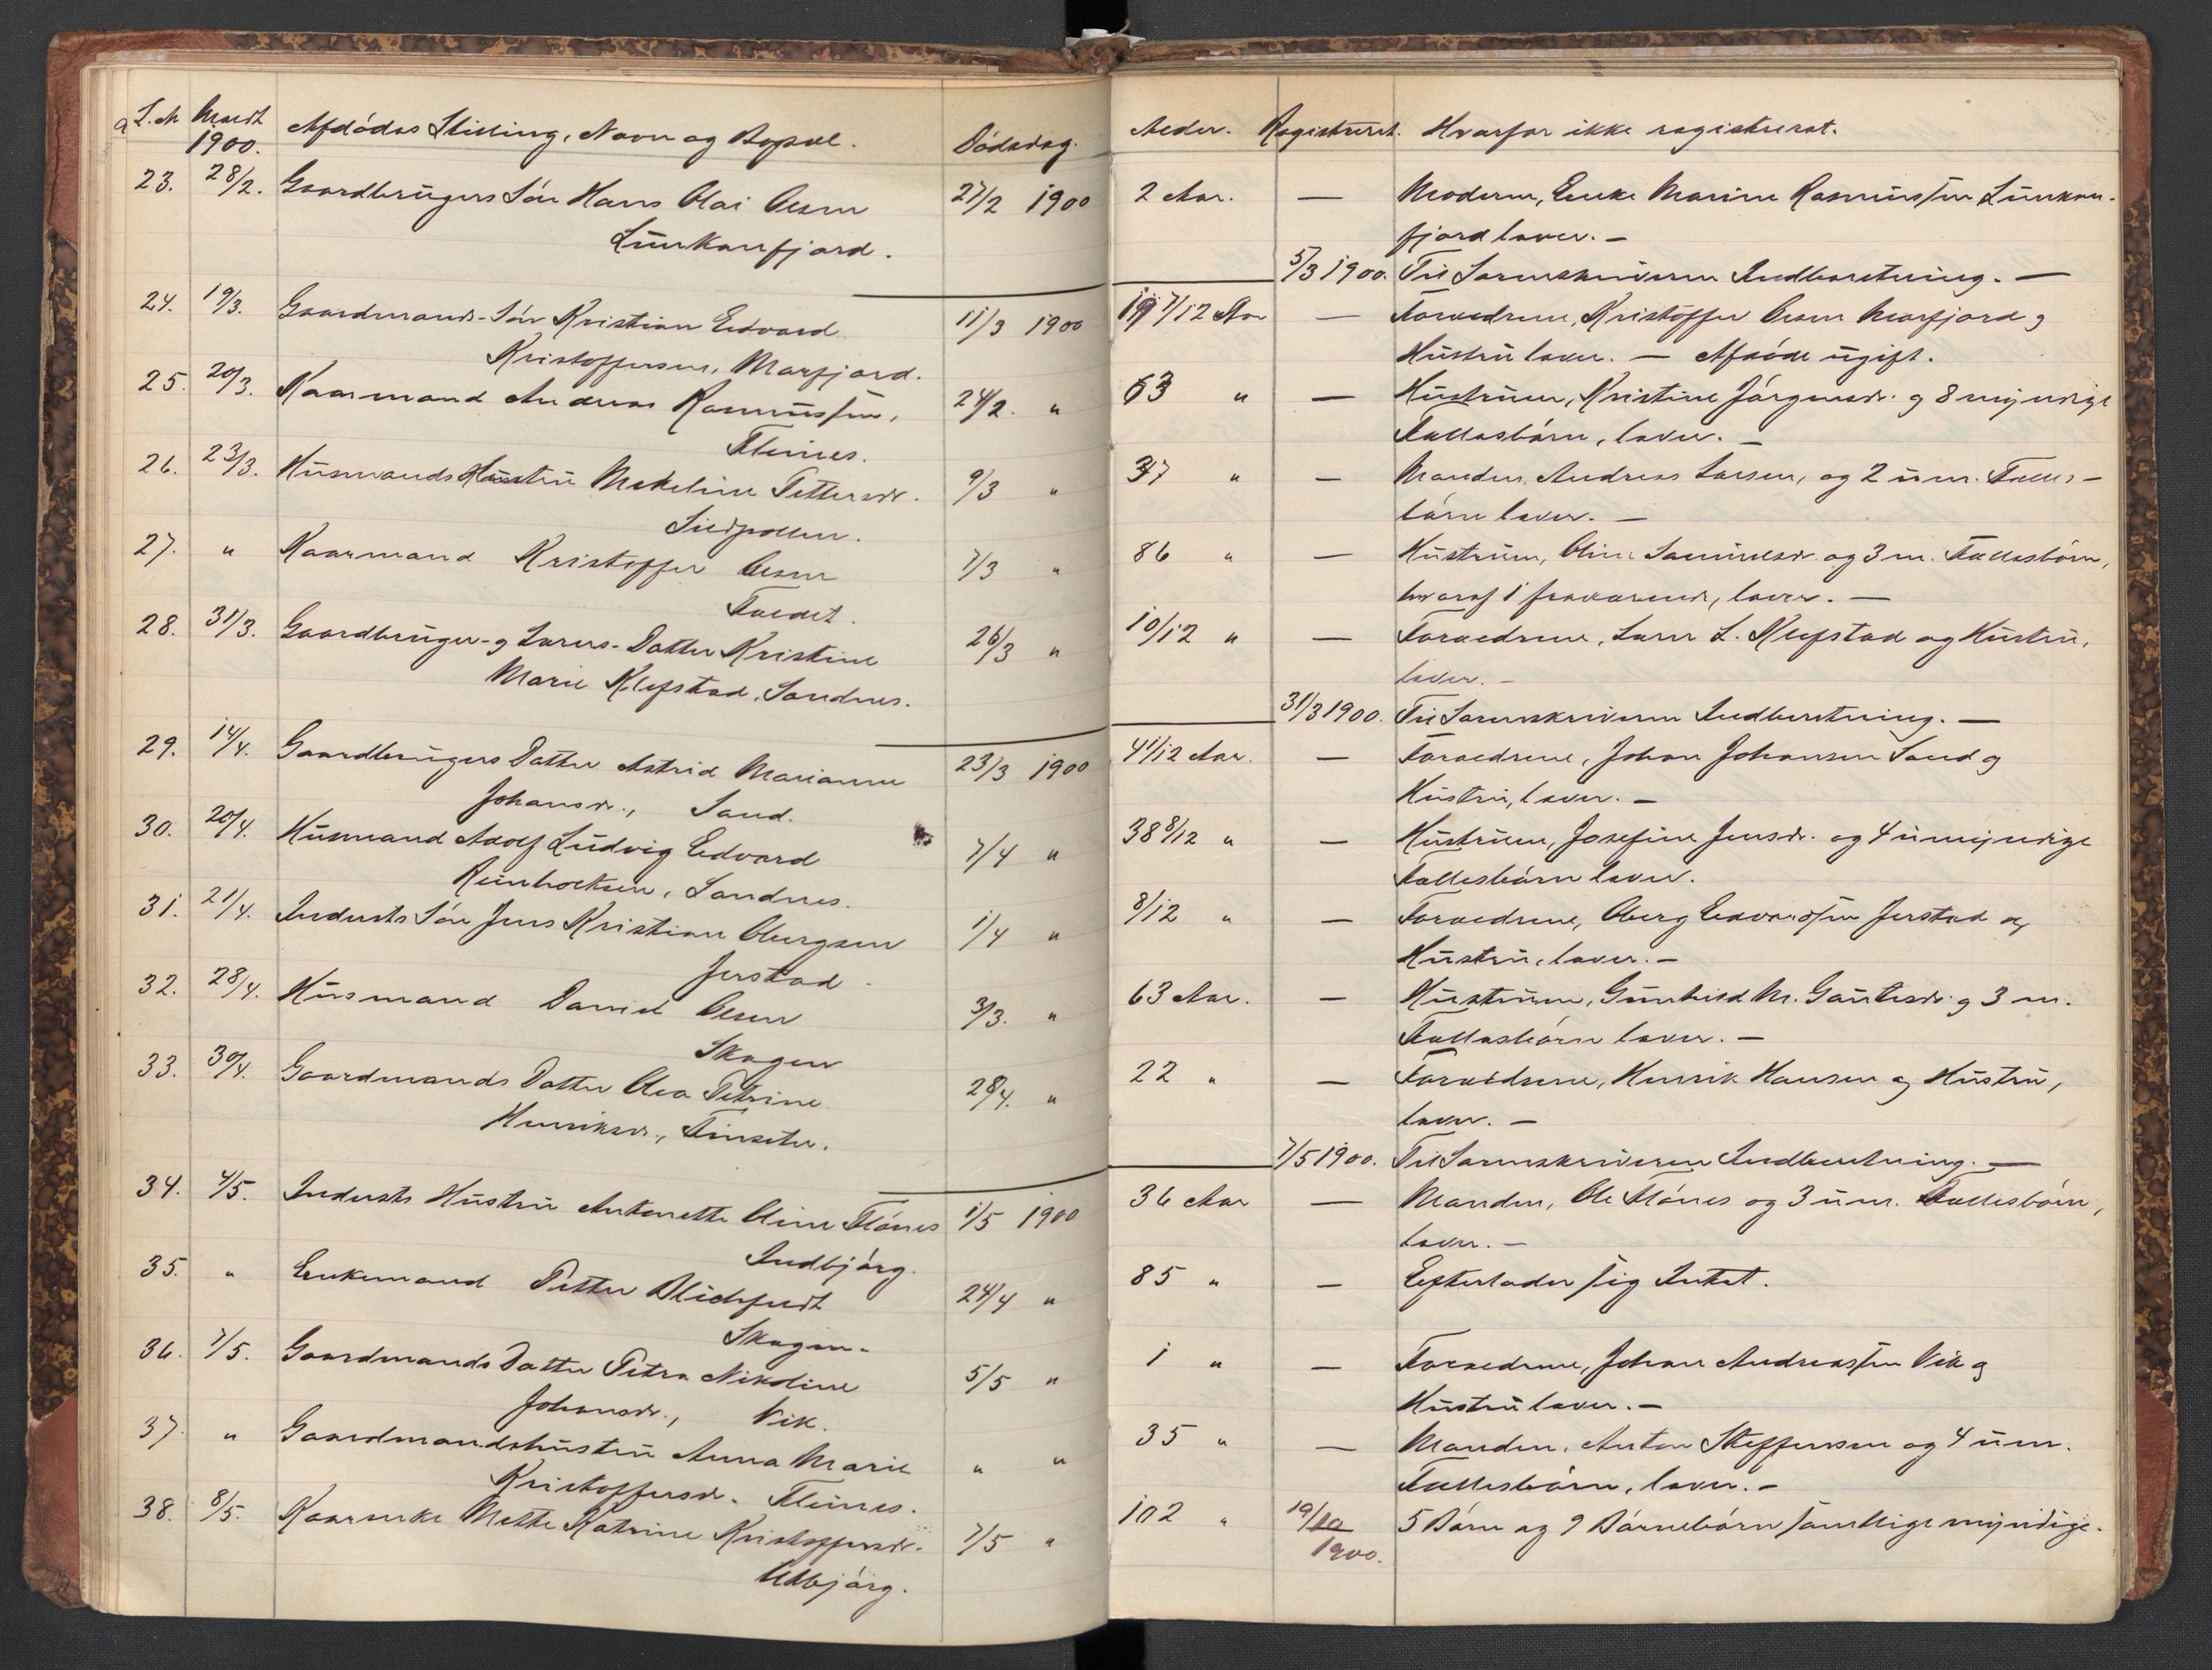 L. N Meldt 1900. Afdödes Stilling, Navn og Bopæl. Dödsdag. Alder. Registreret. Hvorfor ikke registreret.
23. 28/2. Gaardbrugers Sön Hans Olai Olsen 27/2 1900 2 Aar. — Moderen, Enke Marine Rasmussen Lunkan-
Lunkanfjord. fjord lever. —
5/3 1900. Til Sorenskriveren Indberetning. —
24. 19/3. Gaardmands-Sön Kristian Edvard 11/3 1900 19 7/12 Aar — Forældrene, Kristoffer Olsen Morfjord og
Kristoffersen, Morfjord. Hustru lever. — Afdöde ugift.
25. 20/3. Kaarmand Andreas Rasmussen, 24/2. " 63 " — Hustruen, Kristine Jörgensdr. og 8 myndige
Fleines. Fællesbörn, lever. —
26. 23/3. Husmands Hustru Mekeline Pettersdr. 9/3 " 37 " — Manden, Andreas Larsen, og 2 um. Fælles-
Sildpollen. börn lever. —
27. " Kaarmand Kristoffer Olsen 7/3 " 86 " — Hustruen, Oline Samuelsdr. og 3 m. Fællesbörn,
Taldet. hvoraf 1 fraværende, lever. —
28. 31/3. Gaardbruger- og Lærers-Datter Kristine 26/3 " 10/12 " — Forældrene, Lærer L. Klefstad og Hustru,
Marie Klefstad, Sandnes. lever. —
31/3 1900. Til Sorenskriveren Indberetning. —
29. 14/4. Gaardbrugers Datter Astrid Marianne 23/3 1900 4 1/12 Aar. — Forældrene, Johan Johansen Sand og
Johansdr., Sand. Hustru, lever. —
30. 20/4. Husmand Adolf Ludvig Edvard 7/4 " 38 8/12 " — Hustruen, Josefine Jensdr. og 4 umyndige
Reinholtsen, Sandnes. Fællesbörn lever.
31. 21/4. Inderst's Sön Jens Kristian Obergsen 1/4 " 8/12 " — Forældrene, Oberg Edvardsen Jerstad og
Jerstad. Hustru, lever. —
32. 28/4. Husmand Daniel Olsen 3/3. " 63 Aar. — Hustruen, Gunhild M. Gautesdr. og 3 m.
Skagen Fællesbörn lever. —
33. 30/4. Gaardmands Datter Olea Petrine 28/4. " 22 " — Forældrene, Henrik Hansen og Hustru,
Henriksdr., Finsæter. lever. —
7/5 1900. Til Sorenskriveren Indberetning. —
34. 4/5. Inderst's Hustru Antonette Oline Flönes 1/5 1900 36 Aar — Manden, Ole Flönes og 3 um. Fællesbörn,
Indbjörg. lever. —
35. " Enkemand Petter Blichfeldt 24/4 " 85 " — Efterlader sig Intet.
Skagen.
36. 7/5. Gaardmands Datter Petra Nikoline 5/5 " 1 " — Forældrene, Johan Andreassen Vik og
Johansdr., Vik. Hustru lever. —
37. " Gaardmandshustru Anna Marie " " 35 " — Manden, Anton Steffensen og 4 um.
Kristoffersdr. Fleines. Fællesbörn, lever. —
38. 8/5. Kaarenke Mette Katrine Kristoffersdr. 7/5 " 102 " 19/10 1900. 5 Börn og 9 Börnebörn samtlige myndige.
Udbjörg.